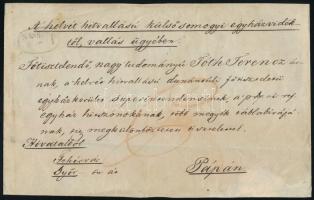 A helvét hitvallású külső somogyi egyházvidék-
től, vallás ügyében.
Főtisztelendő, nagy tudományú Tóth Ferencz úr-
nak, a helvét hitvallású dunántúli főtiszteletű
egyházkerület superintendensének, a pápai ref.
egyház lelkipásztorának, több megyék táblabírájá-
nak, én megkülönböztetett tisztelettel.
Hivatalból
Fehérvár
Győr
Pápán